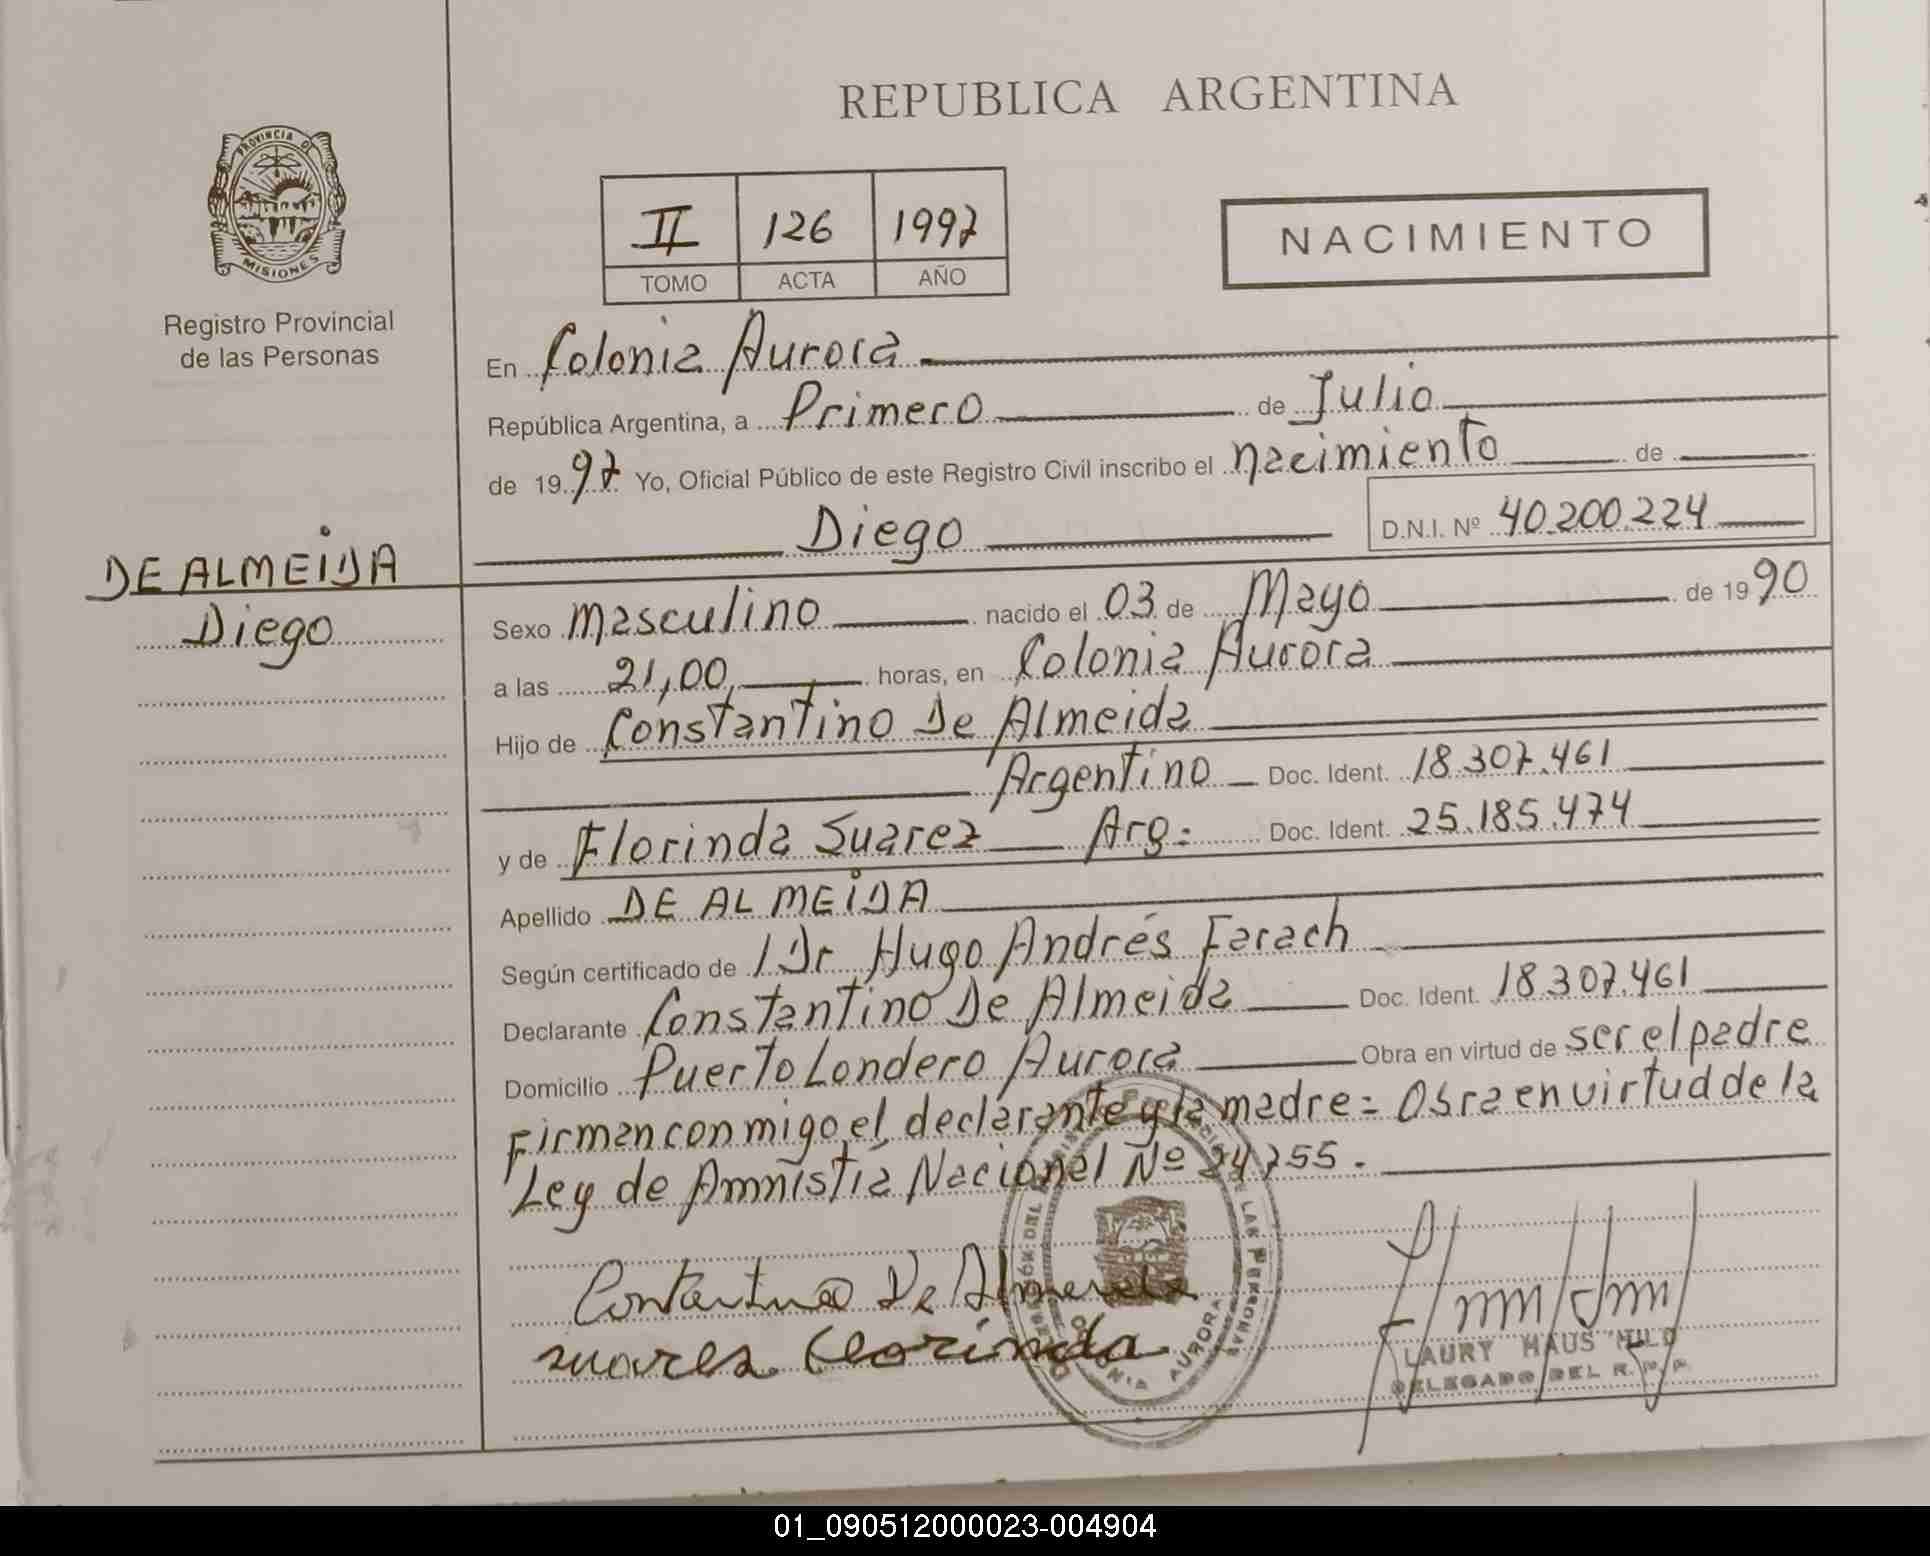 REPUBLICA ARGENTINA
PROVINCIA DE
MISIONES
Registro Provincial
de las Personas
II 126 1997
TOMO ACTA AÑO
NACIMIENTO
En Colonia Aurora
República Argentina, a Primero de Julio
de 1997 Yo, Oficial Público de este Registro Civil inscribo el nacimiento de
Diego D.N.I. Nº 40.200.224
DE ALMEIDA
Diego
Sexo masculino nacido el 03 de Mayo de 1990
a las 21,00 horas, en Colonia Aurora
Hijo de Constantino De Almeida
Argentino Doc. Ident. 18.307.461
y de Florinda Suarez Arg: Doc. Ident. 25.185.474
Apellido DE ALMEIDA
Según certificado de Dr Hugo Andrés Farach
Declarante Constantino De Almeida Doc. Ident. 18.307.461
Domicilio Puerto Londero Aurora Obra en virtud de ser el padre
Firman conmigo el declarante y la madre= Obra en virtud de la
Ley de Amnistía Nacional Nº 24.755.
De Almeida
suares
COLONIA AURORA
DE LAS PERSONAS
LAURY HAUS MILD
DELEGADO DEL R.P.P.
01_090512000023-004904